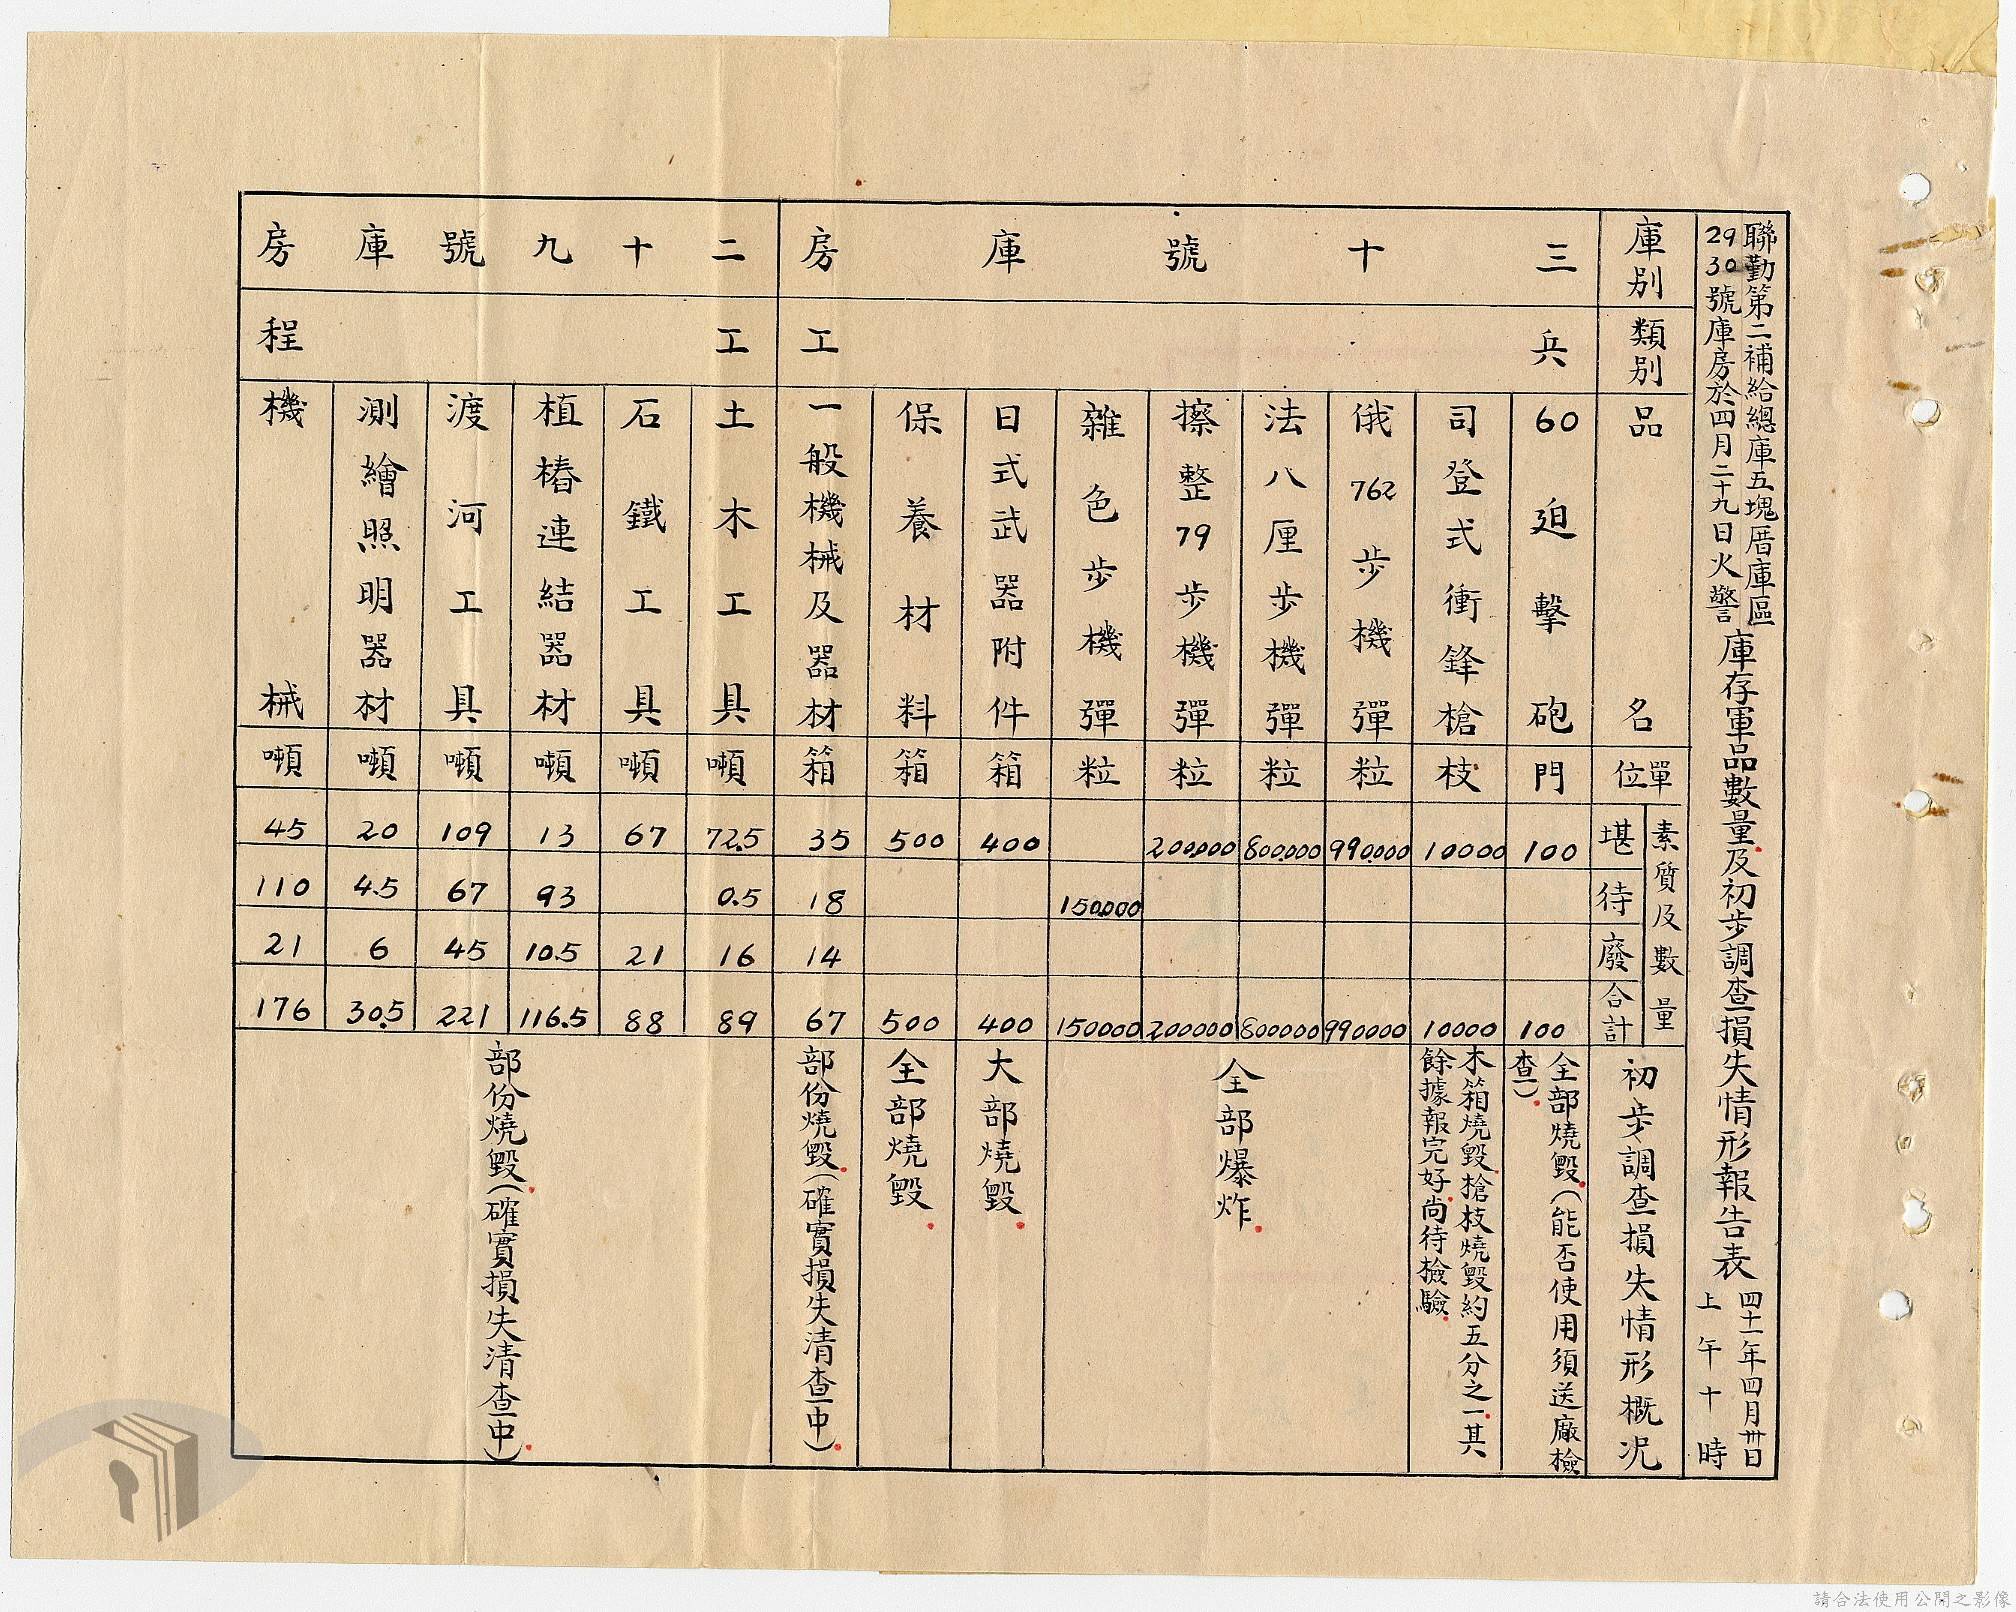 聯勤第二補給總庫五塊厝庫區
29
30號庫房於四月二十九日火警
庫存軍品數量及初步調查損失情形報告表
四十一年四月卅日
上午十時
庫別
類別
品名
單位
素質及數量
堪
待
廢
合計
初步調查損失情形概况
三十號庫房
兵工
60迫擊砲
門
100
100
全部燒毀(能否使用須送廠檢
查)
司登式衝鋒槍
枝
10000
10000
木箱燒毀槍枝燒毀約五分之一其
餘據報完好尚待檢驗
俄762步機彈
粒
990.000
990000
法八厘步機彈
粒
800.000
800000
擦整79步機彈
粒
200.000
200000
雜色步機彈
粒
150.000
150000
全部爆炸
日式武器附件
箱
400
400
大部燒毀
保養材料
箱
500
500
全部燒毀
一般機械及器材
箱
35
18
14
67
部份燒毀(確實損失清查中)
二十九號庫房
工程
土木工具
噸
72.5
0.5
16
89
石鐵工具
噸
67
21
88
植樁連結器材
噸
13
93
10.5
116.5
渡河工具
噸
109
67
45
221
測繪照明器材
噸
20
4.5
6
30.5
機械
噸
45
110
21
176
部份燒毀(確實損失清查中)
請合法使用公開之影像